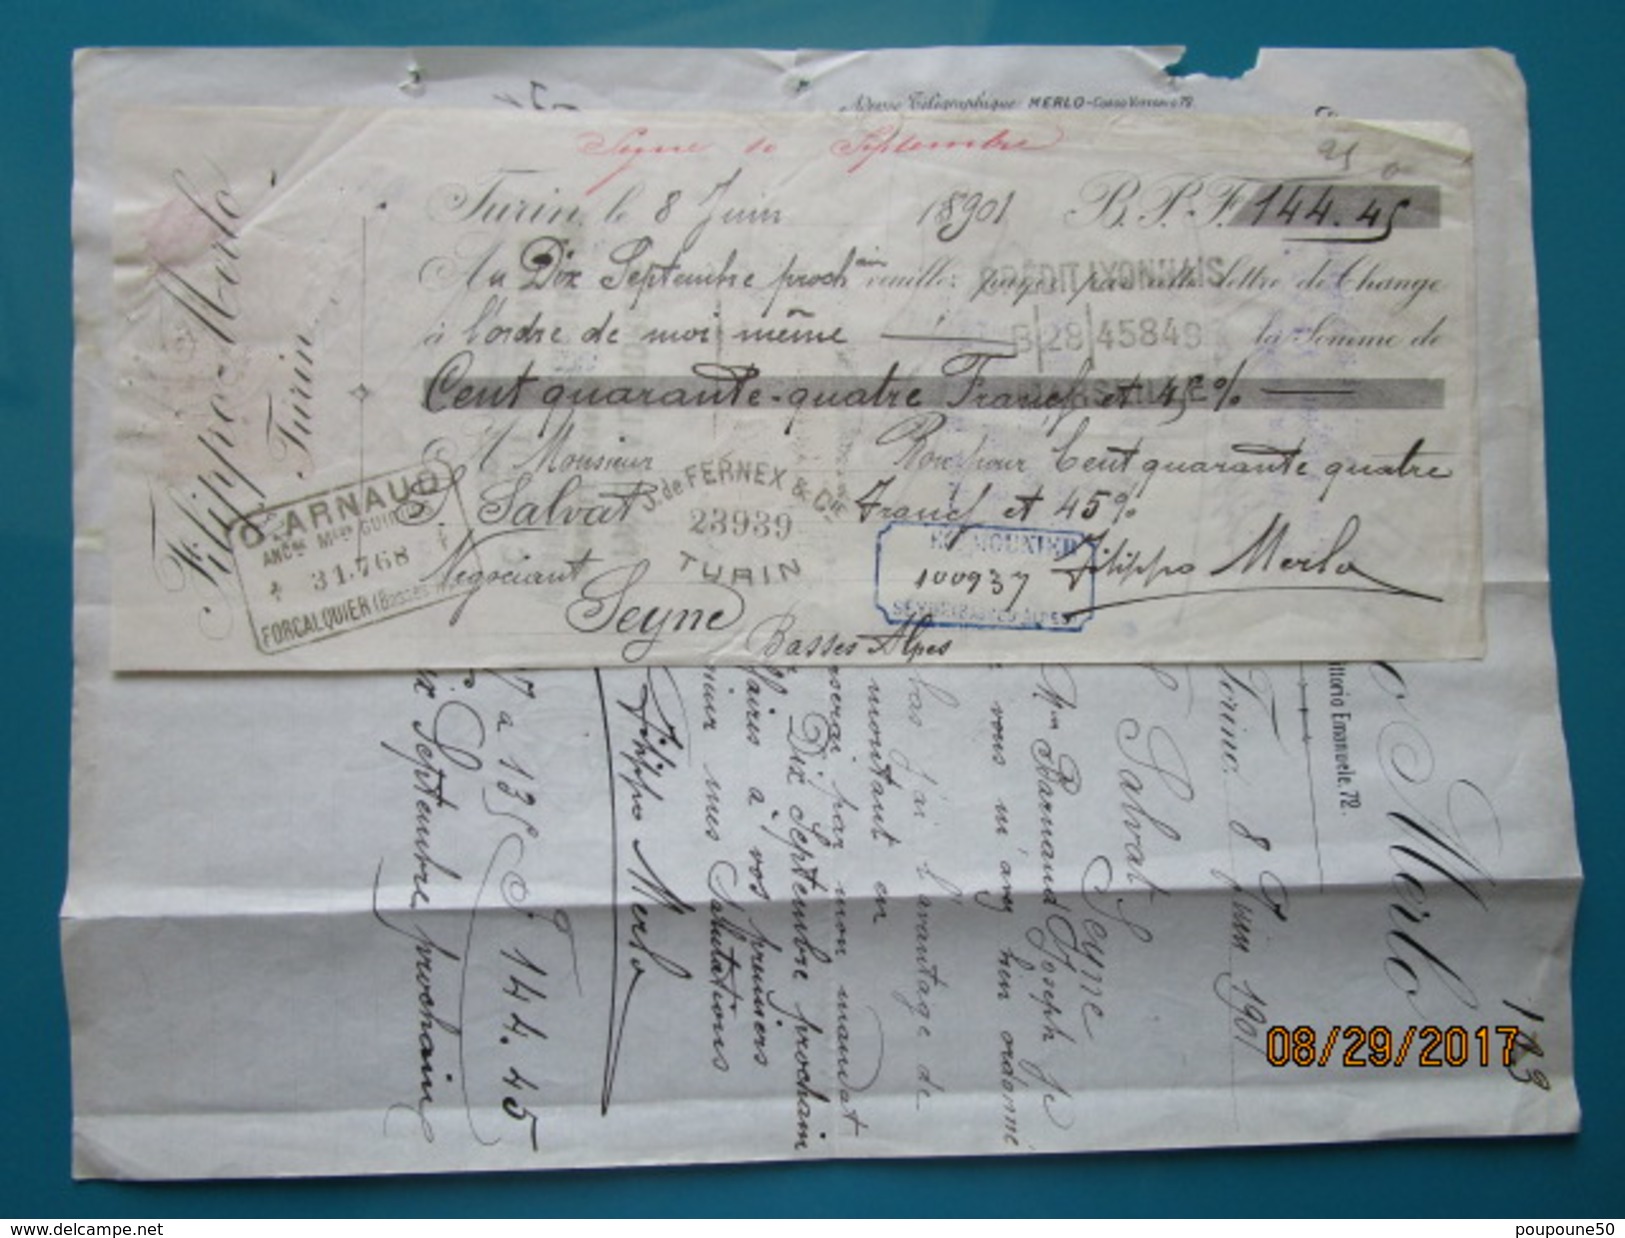 Adresse Télégraphique MERLO - Corso Vittorio 72
Seyne 10 Septembre
Filippo Merlo
Turin
Turin, le 8 Juin 18901 B.P.F. 144.45
Au Dix Septembre prochain veuillez payer par cette lettre de Change
à l'ordre de moi même la Somme de
CRÉDIT LYONNAIS
B 28 45849
MARSEILLE
Cent quarante-quatre Francs et 45%
A Monsieur Bon pour Cent quarante quatre
S. Salvat Francs et 45%
Négociant Filippo Merlo
Seyne
Basses Alpes
ARNAUD
ANCne Mson
31.768
FORCALQUIER (Basses
J. de FERNEX & Cie
23939
TURIN
MOUNIER
100937
SEYNE (BASSES ALPES)
Merlo
Vittorio Emanuele, 72.
Torino, 8 Juin 1901
183
S Salvat
Seyne
Mon Barnaud Joseph Je
vous m'avez bien ordonné
bas j'ai l'avantage de
montant en
par mon mandat
Dix Septembre prochain
affaires à vos premiers
mes Salutations
Filippo Merlo
a 135 F 144.45
Dix Septembre prochain
08/29/2017
poupoune50
www.delcampe.net